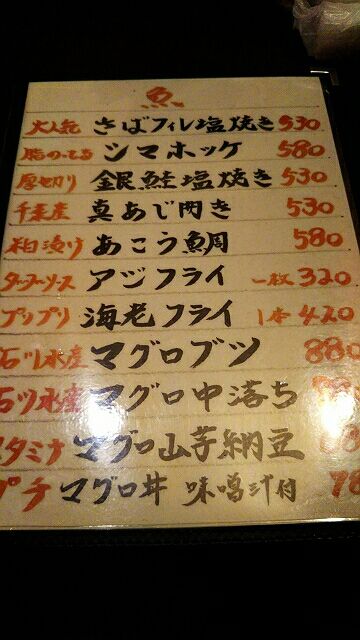 魚
大人気 さばフィレ塩焼き 530
脂のってる シマホッケ 580
厚切り 銀鮭塩焼き 530
千葉産 真あじ開き 530
粕漬け あこう鯛 580
タルタルソース アジフライ 一枚 320
プリプリ 海老フライ 1本 420
石川水産 マグロブツ 880
石川水産 マグロ中落ち
スタミナ マグロ山芋納豆
プチ マグロ丼 味噌汁付 78